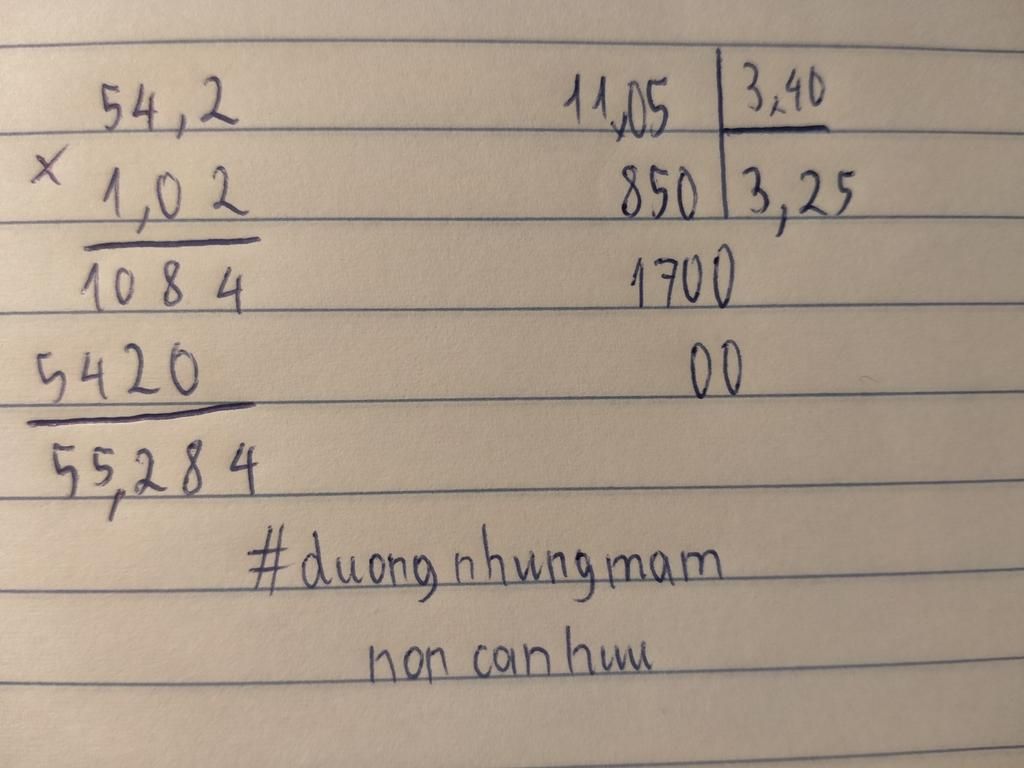 54,2
x 1,02
1084
5420
55,284
11,05 3,40
850 3,25
1700
00
#duongnhungmam
non can huu